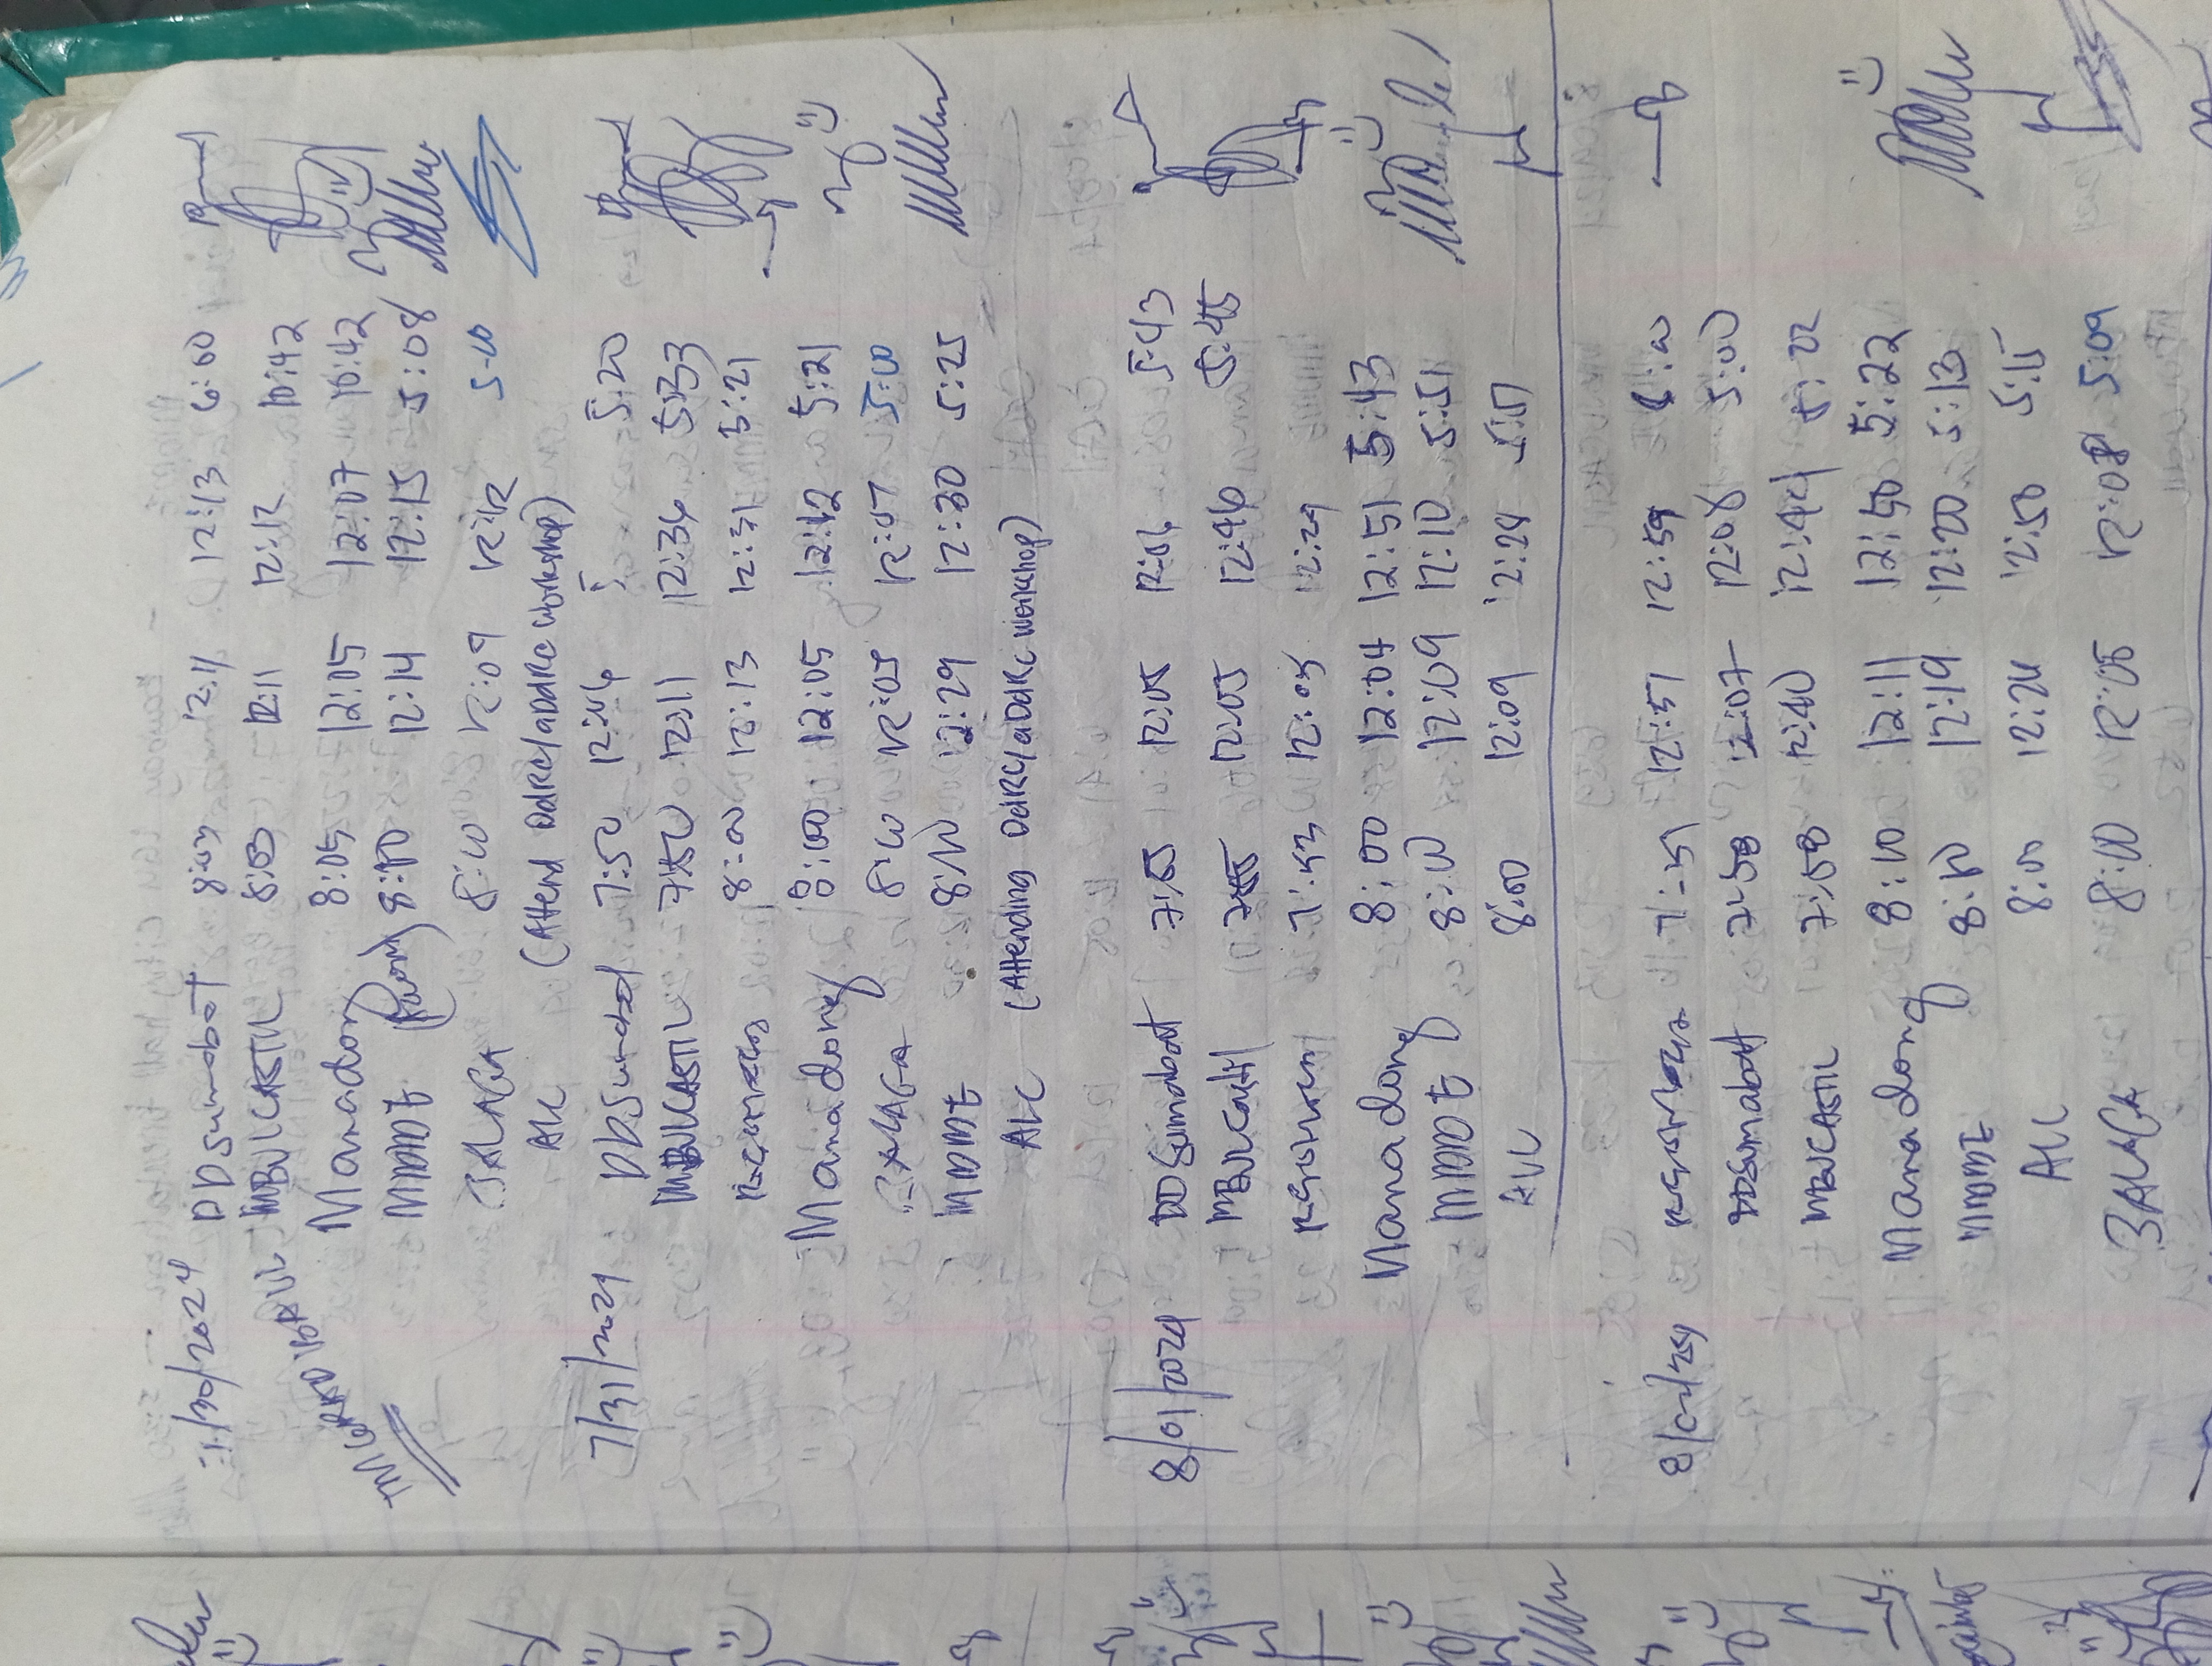 7/30/2024 DDSumabot 8:03 12:11 12:13 6:00
MBVLCASTIL 8:03 12:11 12:12 10:42
Manadong 8:05 12:05 12:07 10:42
MDDE 8:00 12:14 12:15 5:08
BALAGA 8:00 12:09 12:12 5:00
ALC (Attend DdRC/aDdRC workshop)
7/31/2024 DDSumabot 7:50 12:16 5:20
MBVLCASTIL 7:50 12:11 12:36 5:33
8:00 12:13 12:31 5:21
Manadong 8:00 12:05 12:12 5:21
BALAGA 8:00 12:05 12:07 5:00
MDDE 8:00 12:29 12:30 5:25
ALC (Attending DdRC/aDdRC workshop)
8/01/2024 DDSumabot 7:55 12:05 12:06 5:43
MBVLCastil 12:05 12:46 5:45
7:53 12:05 12:29
Manadong 8:00 12:04 12:51 5:43
MDDE 8:00 12:09 12:10 5:51
ALC 8:00 12:09 12:28 5:51
8/02/24 7:51 12:57 12:59
DDSumabot 7:58 12:07 12:08 5:00
MBVLCASTIL 7:58 12:40 12:44 5:22
Manadong 8:00 12:11 12:50 5:22
MDDE 8:00 12:19 12:20 5:13
ALC 8:00 12:24 12:50 5:15
BALAGA 8:00 12:05 12:08 5:09